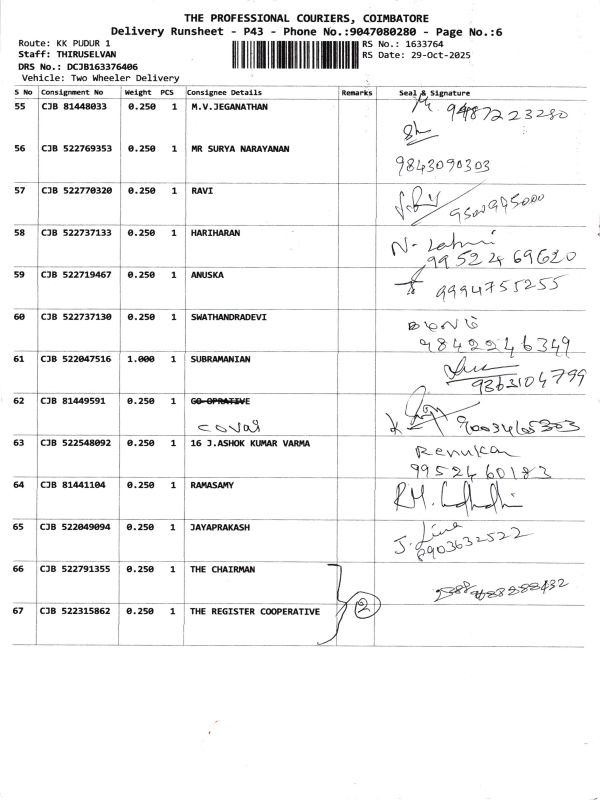 THE PROFESSIONAL COURIERS, COIMBATORE
Delivery Runsheet - P43 - Phone No.:9047080280 - Page No.:6
Route: KK PUDUR 1
RS No.: 1633764
Staff: THIRUSELVAN
RS Date: 29-Oct-2025
DRS No.: DCJB163376406
Vehicle: Two Wheeler Delivery
S No Consignment No Weight PCS Consignee Details Remarks Seal & Signature
55 CJB 81448033 0.250 1 M.V.JEGANATHAN
9487223280
56 CJB 522769353 0.250 1 MR SURYA NARAYANAN
9843090303
57 CJB 522770320 0.250 1 RAVI
9500995000
58 CJB 522737133 0.250 1 HARIHARAN
99524 69620
59 CJB 522719467 0.250 1 ANUSKA
9994755255
60 CJB 522737130 0.250 1 SWATHANDRADEVI
9842246349
61 CJB 522047516 1.000 1 SUBRAMANIAN
9363104799
62 CJB 81449591 0.250 1 GO-OPRATIVE
covai
63 CJB 522548092 0.250 1 16 J.ASHOK KUMAR VARMA
Renuka
9952460183
64 CJB 81441104 0.250 1 RAMASAMY
65 CJB 522049094 0.250 1 JAYAPRAKASH
8903632522
66 CJB 522791355 0.250 1 THE CHAIRMAN
2
67 CJB 522315862 0.250 1 THE REGISTER COOPERATIVE